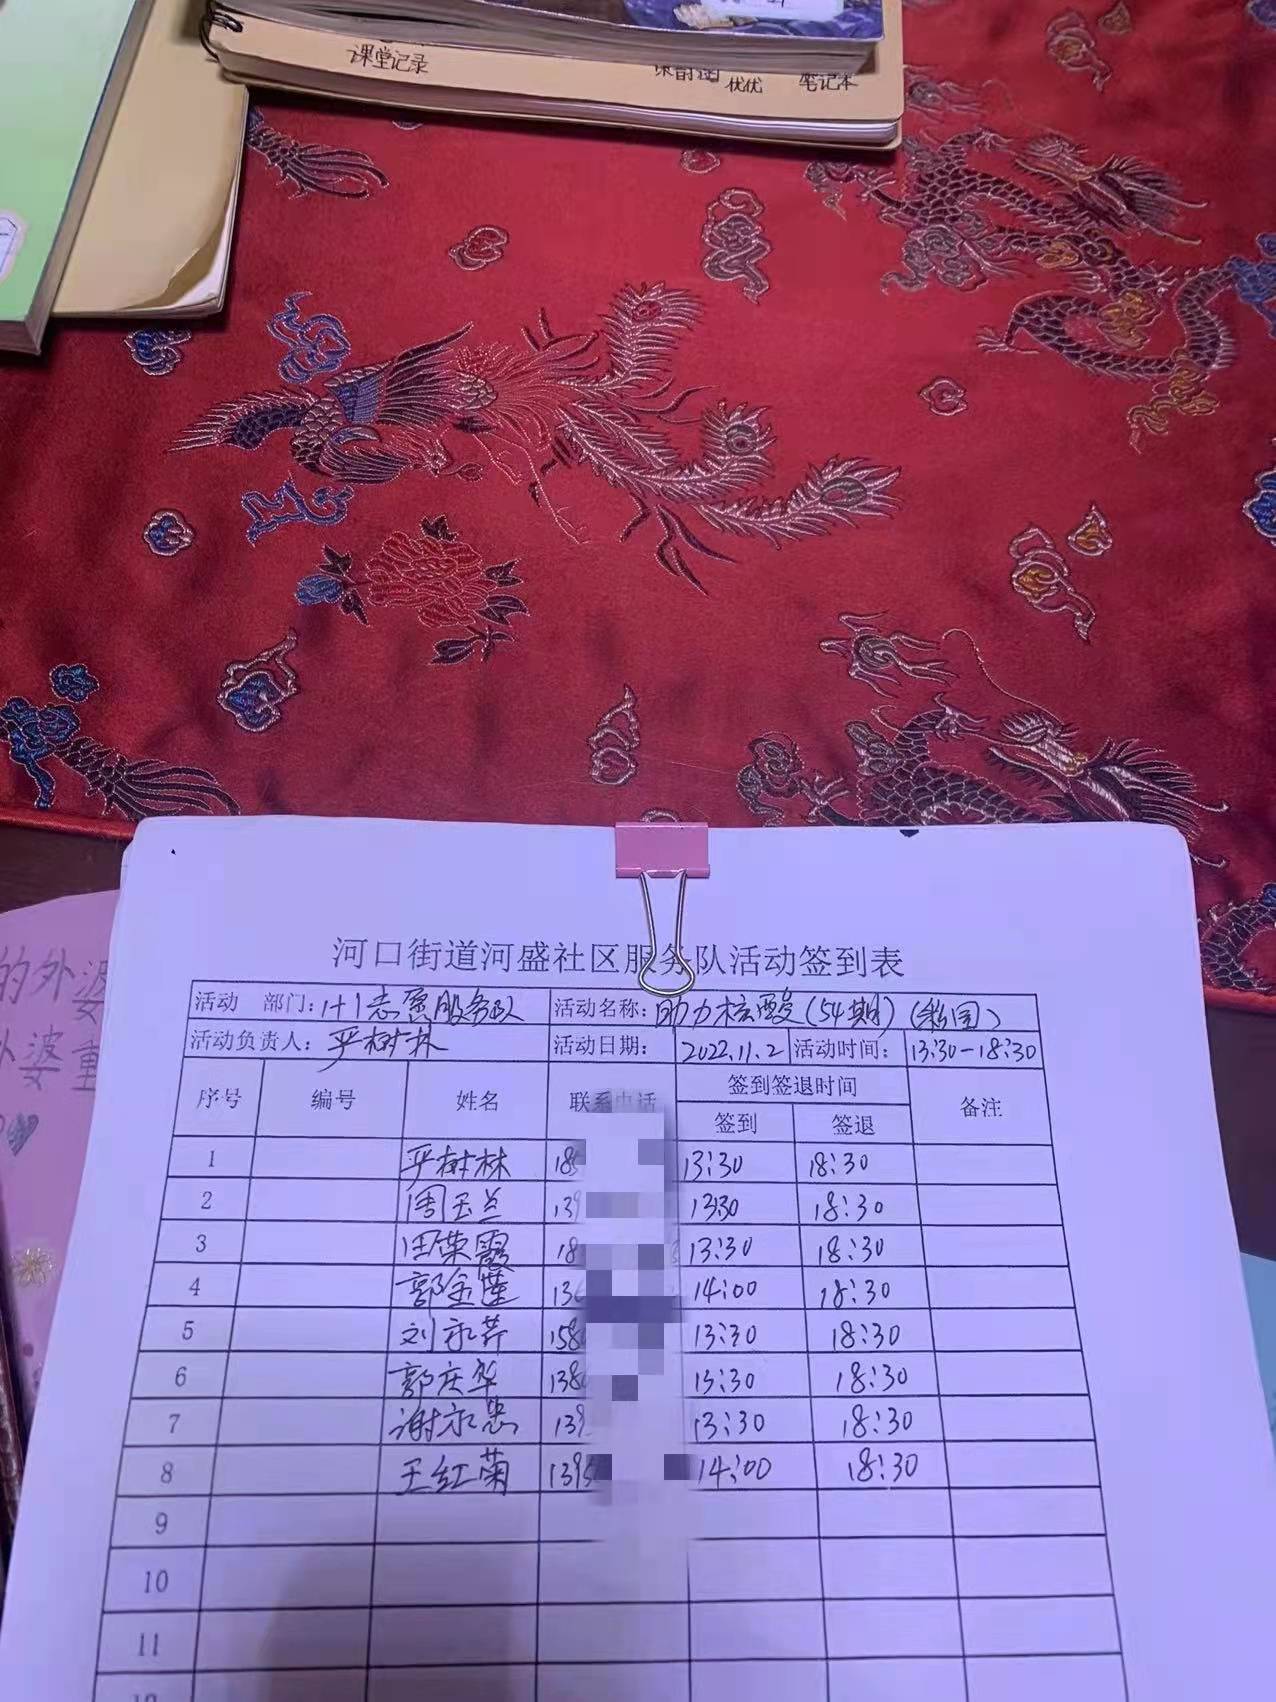 课堂记录
优优
笔记本
的外婆
外婆重
河口街道河盛社区服务队活动签到表
活动 部门:1+1志愿服务队 活动名称:助力核酸(54期)
活动负责人:严树林 活动日期: 2022.11.2 活动时间: 13:30-18:30
序号 编号 姓名 联系电话 签到签退时间 备注
签到 签退
1 严树林 13:30 18:30
2 周玉兰 13:30 18:30
3 田荣霞 13:30 18:30
4 郭金莲 14:00 18:30
5 刘永芹 13:30 18:30
6 郭庆华 13:30 18:30
7 谢永忠 13:30 18:30
8 王红菊 14:00 18:30
9
10
11